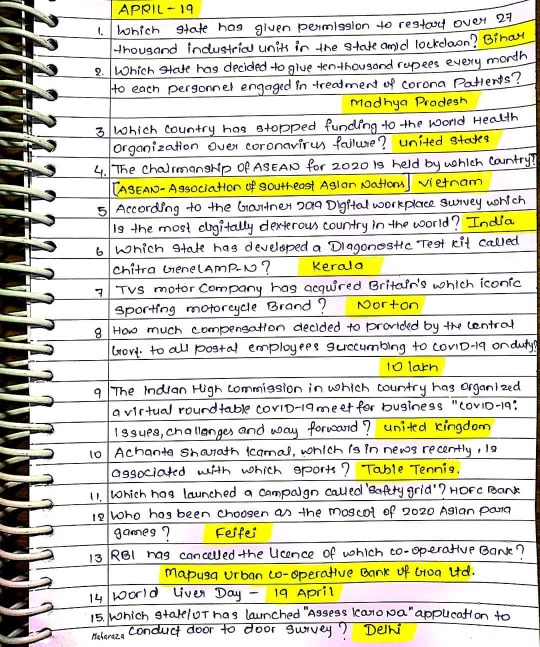 APRIL-19
1. Which state has given permission to restart over 27
thousand industrial units in the state amid lockdown? Bihar
2. Which state has decided to give ten thousand rupees every month
to each personnel engaged in treatment of corona Patients?
Madhya Pradesh
3 Which country has stopped funding to the World Health
Organization over coronavirus failure? united states
4. The chairmanship of ASEAN for 2020 is held by which country?
[ASEAN-Association of Southeast Asian Nations] Vietnam
5 According to the Gartner 2019 Digital workplace survey which
is the most digitally dexterous country in the world? India
6 Which state has developed a Diagonostic Test kit called
Chitra GeneLAMP-N? Kerala
7 TVS motor Company has acquired Britain's which iconic
sporting motorcycle Brand? Norton
8 How much compensation decided to provided by the central
Govt. to all postal employees succumbing to COVID-19 on duty?
10 lakh
9 The Indian High commission in which country has organized
a virtual roundtable COVID-19 meet for business "COVID-19:
Issues, challenges and way forward? united kingdom
10 Achanta Sharath kamal, which is in news recently, is
associated with which sports? Table Tennis.
11. Which has launched a campaign called 'Safety grid'? HDFC Bank
12 Who has been choosen as the mascot of 2020 Asian para
games? Feifei
13 RBI has cancelled the Licence of which co-operative Bank?
Mapusa Urban Co-operative Bank of Goa Ltd.
14 World Liver Day - 19 April
15. Which state/UT has launched "Assess karo na" application to
conduct door to door survey? Delhi